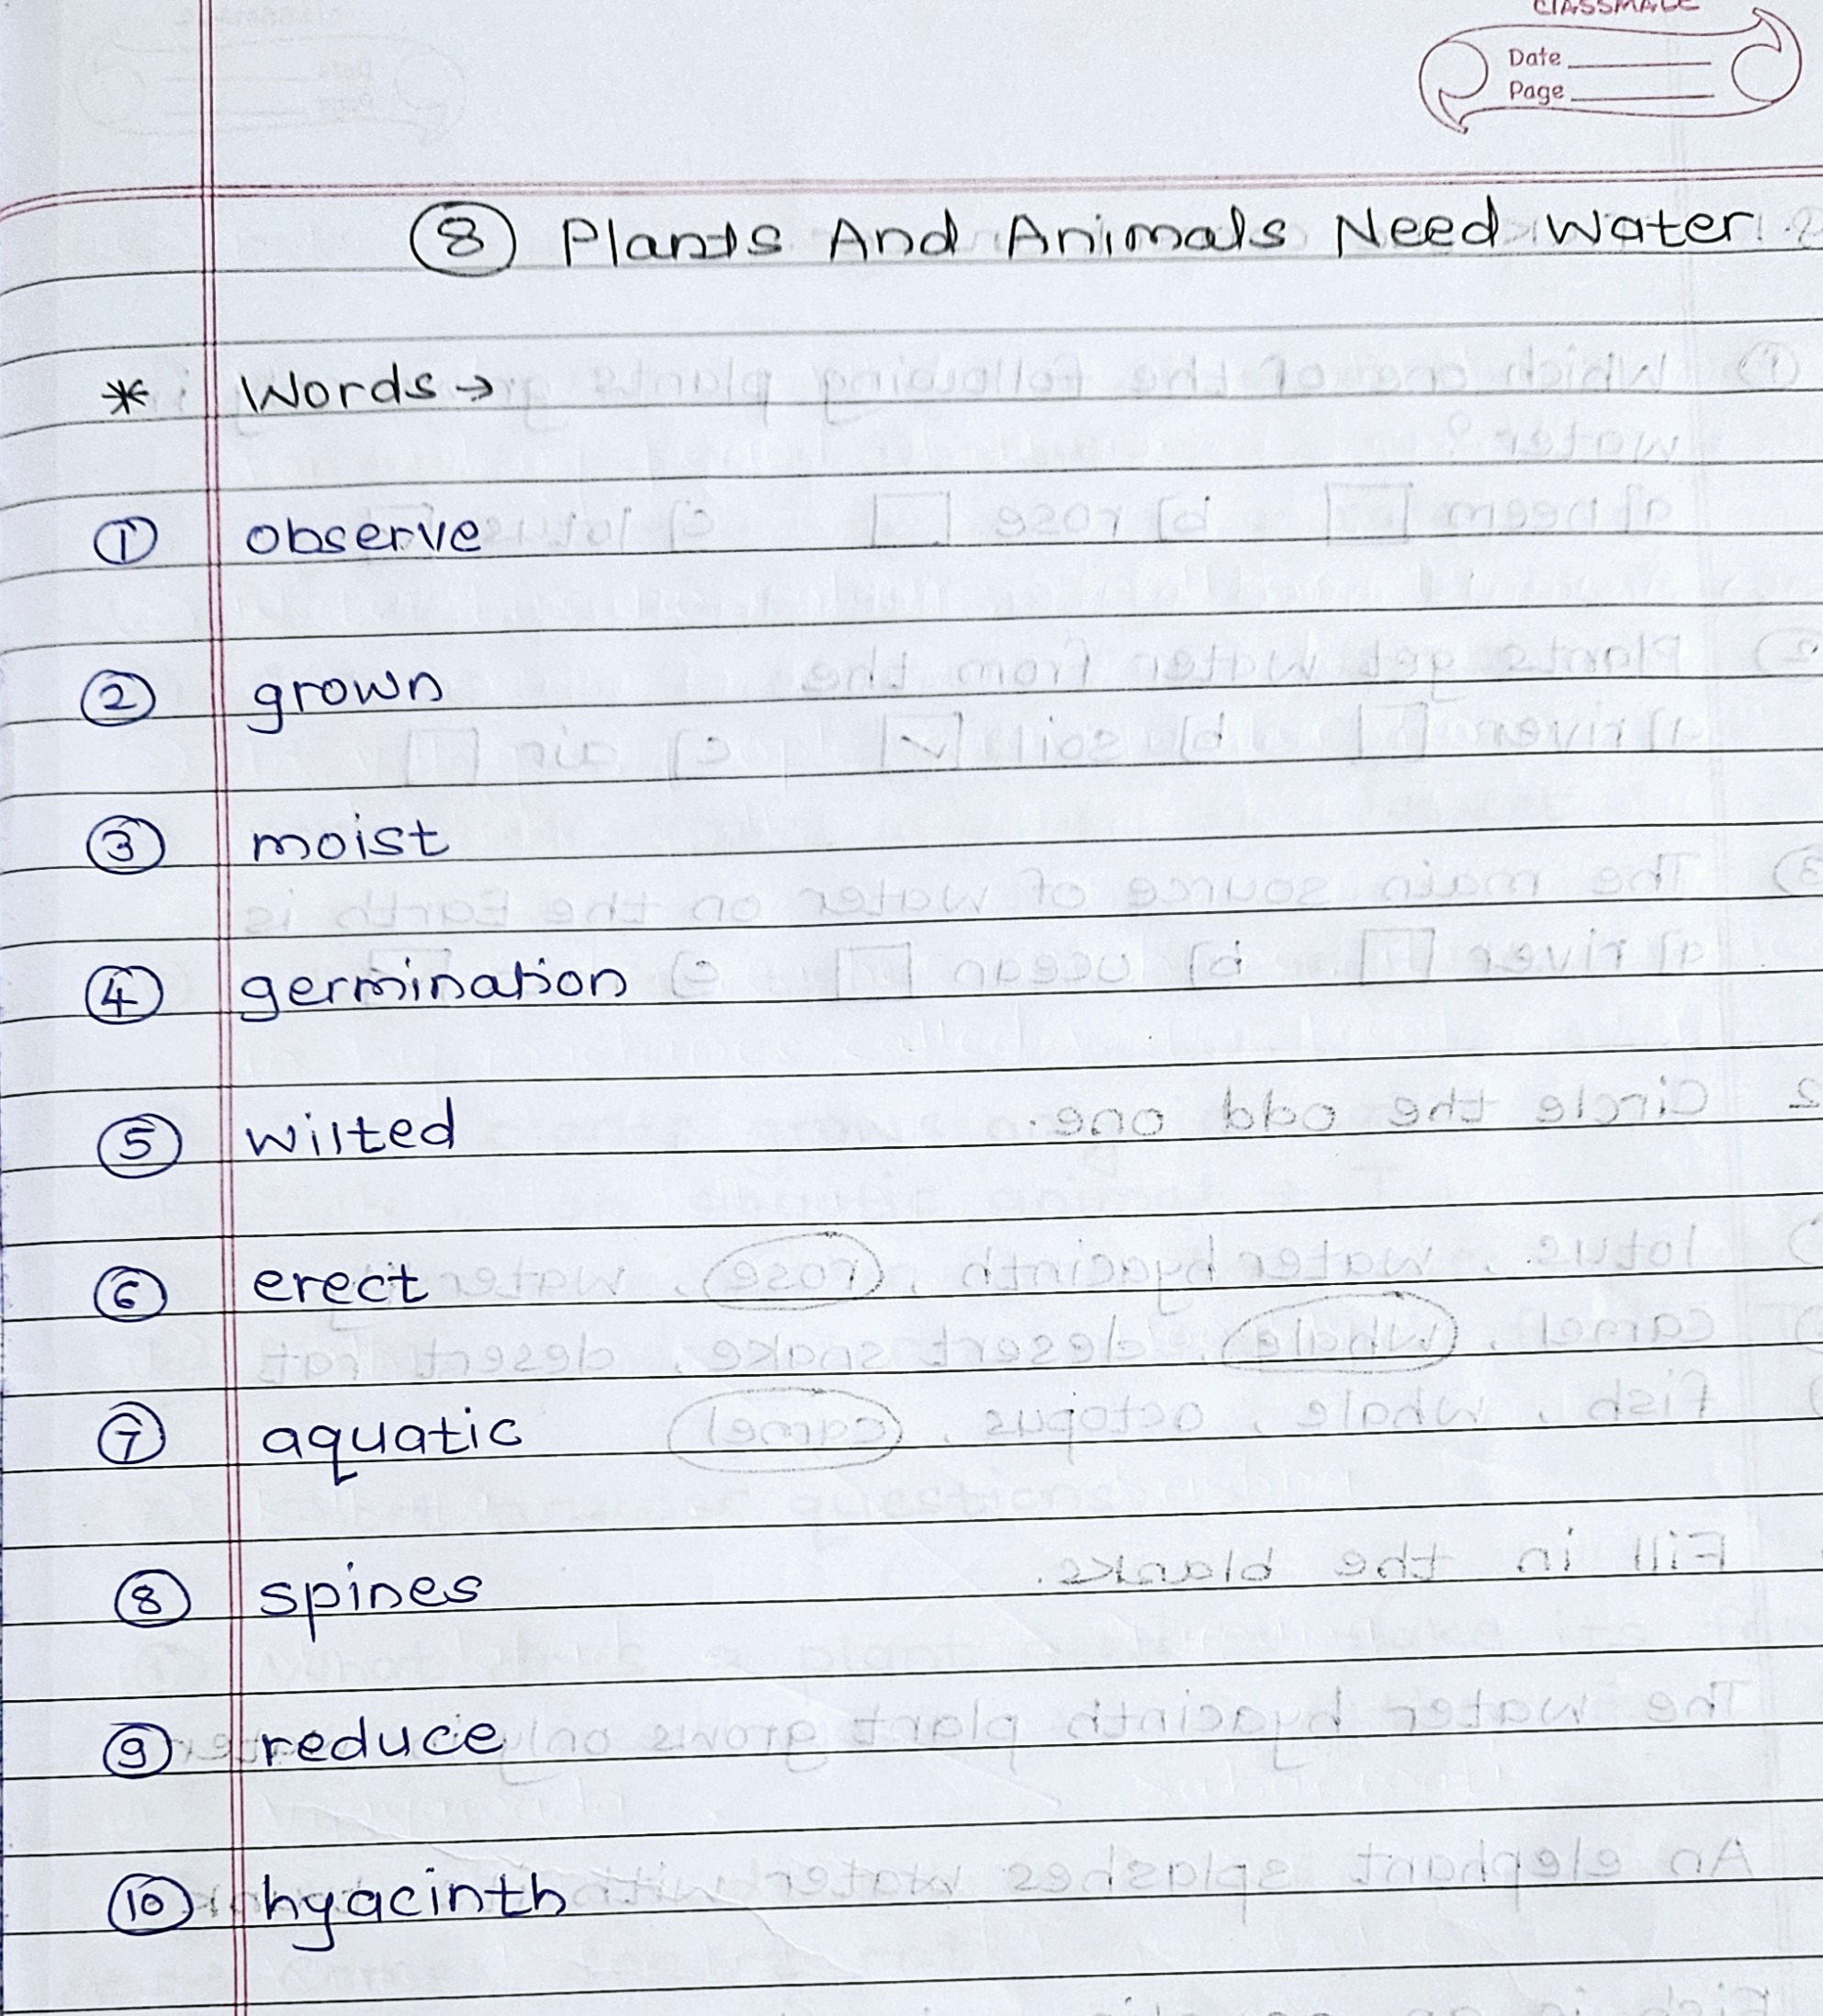 CLASSMATE
Date
Page
⑧ Plants And Animals Need Water
* Words →
① observe
② grown
③ moist
④ germination
⑤ wilted
⑥ erect
⑦ aquatic
⑧ spines
⑨ reduce
⑩ hyacinth